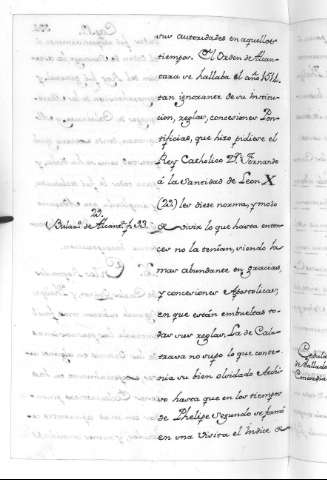 sus autoridades en aquellos
tiempos. El Orden de Alcan-
tara se hallaba el año 1514.
tan ignorante de su Institu-
cion, reglas, concesiones Pon-
tificias, que hizo pidiese el
Rey Catholico Dn. Fernando
á la Santidad de Leon X
(22) les diese norma, y modo
de vivir lo que hasta enton-
ces no la tenían, siendo la
mas abundante en gracias,
y concesiones Apostolicas,
en que están embueltas to-
das sus reglas. La de Cala-
trava no supo lo que conte-
nia su bien olvidado Archi-
vo hasta que en los tiempos
de Phelipe Segundo se formó
en una visita el Indice de
22.
de Alcant. f. 33.